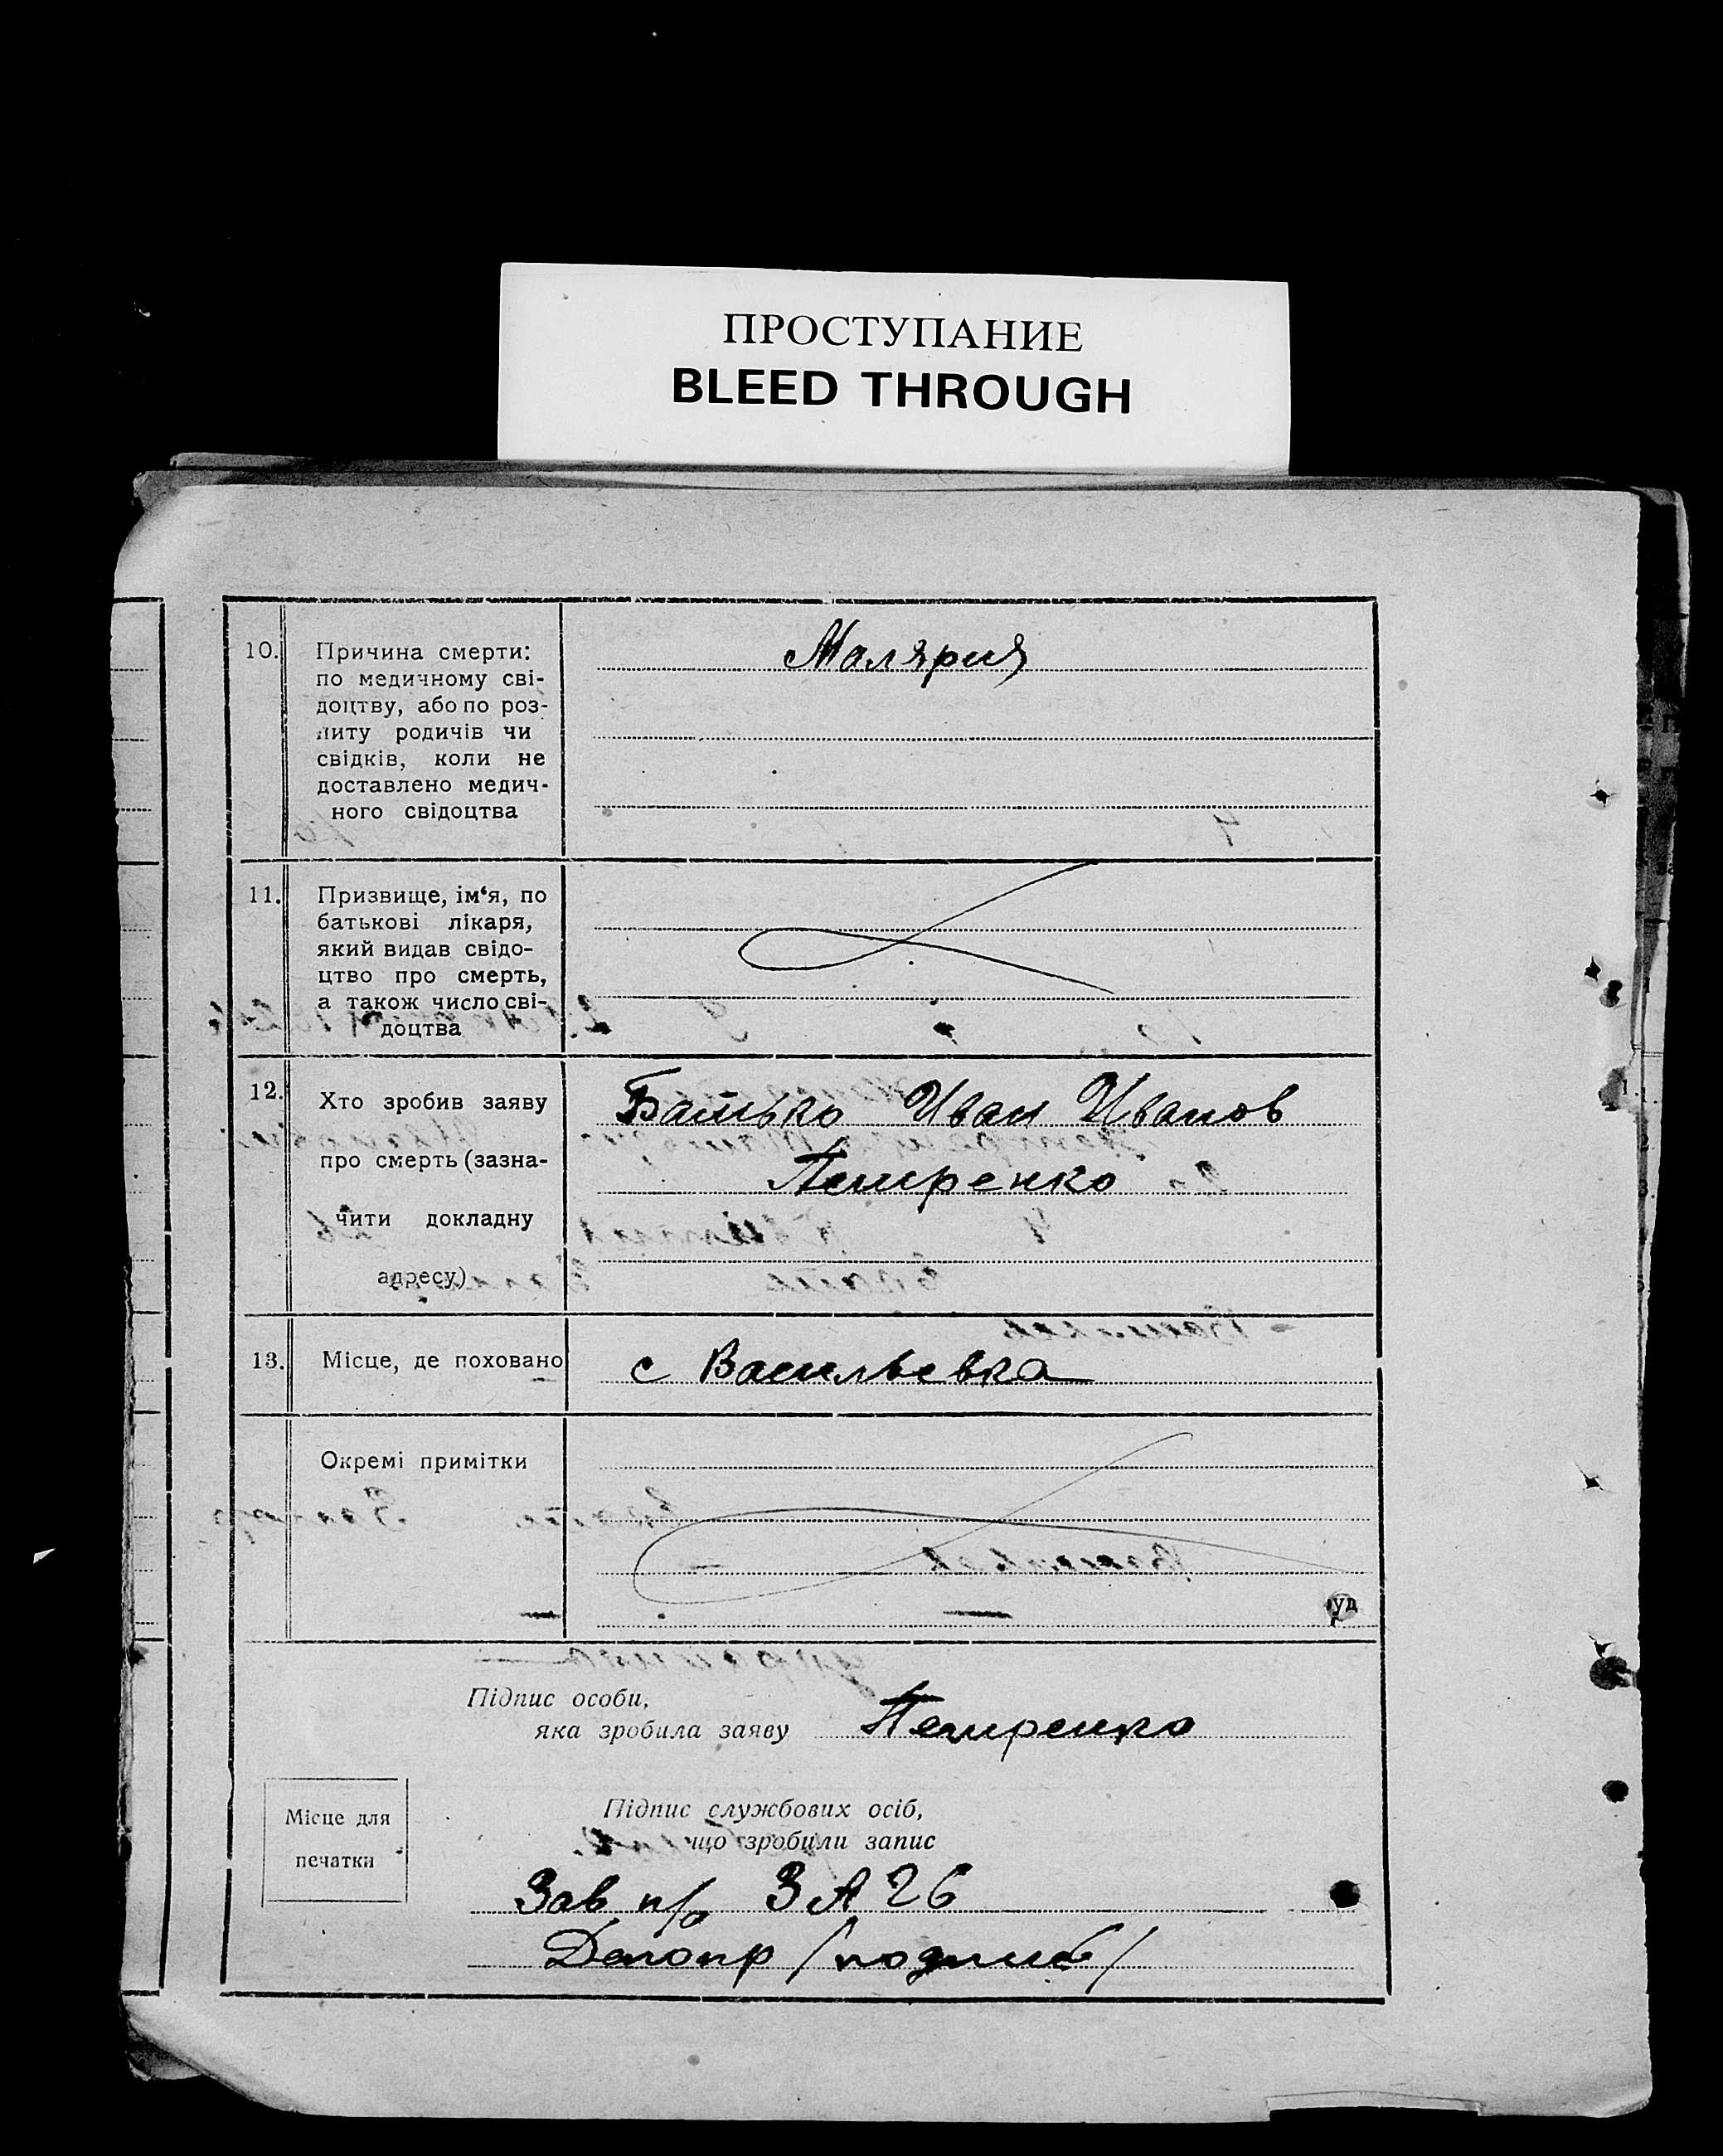 ПРОСТУПАНИЕ
BLEED THROUGH
10. Причина смерти: Малярия
по медичному сві-
доцтву, або по роз-
питу родичів чи
свідків, коли не
доставлено медич-
ного свідоцтва
11. Призвище, ім‘я, по
батькові лікаря,
який видав свідо-
цтво про смерть,
а також число сві-
доцтва
12. Хто зробив заяву Батько Иван Иванов
про смерть (зазна- Петренко
чити докладну
адресу)
13. Місце, де поховано с Васильевка
Окремі примітки
Підпис особи,
яка зробила заяву Петренко
Місце для
печатки
Підпис службових осіб,
що зробили запис
Зав п/о
Делопр /подпис/